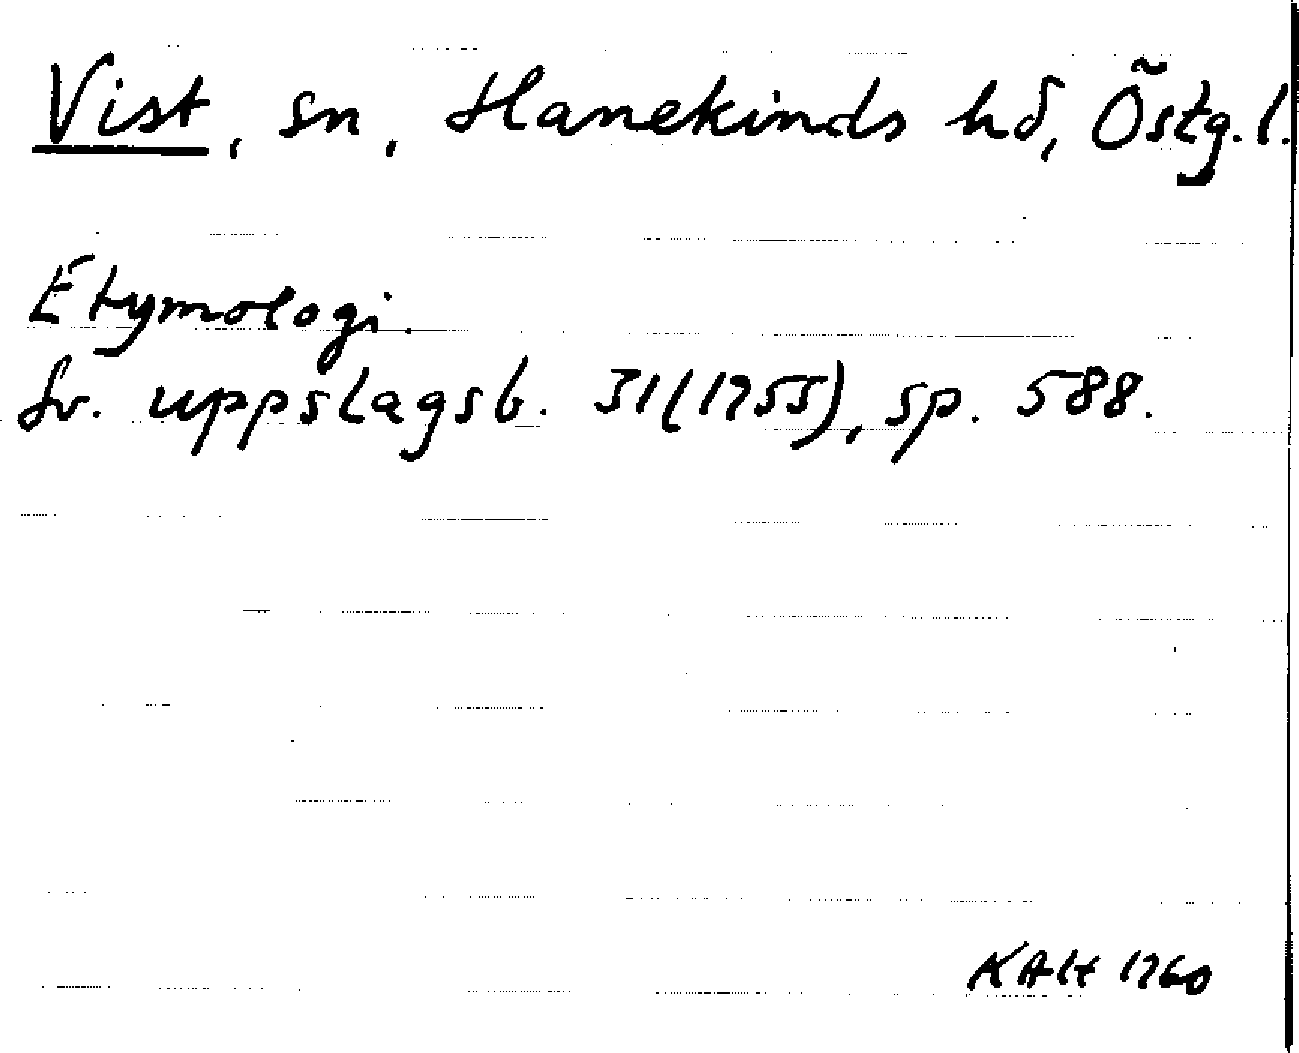 Vist, sn, Hanekinds hd, Östg. l.
Etymologi.
Sv. uppslagsb. 31(1955), sp. 588.
KAH 1960